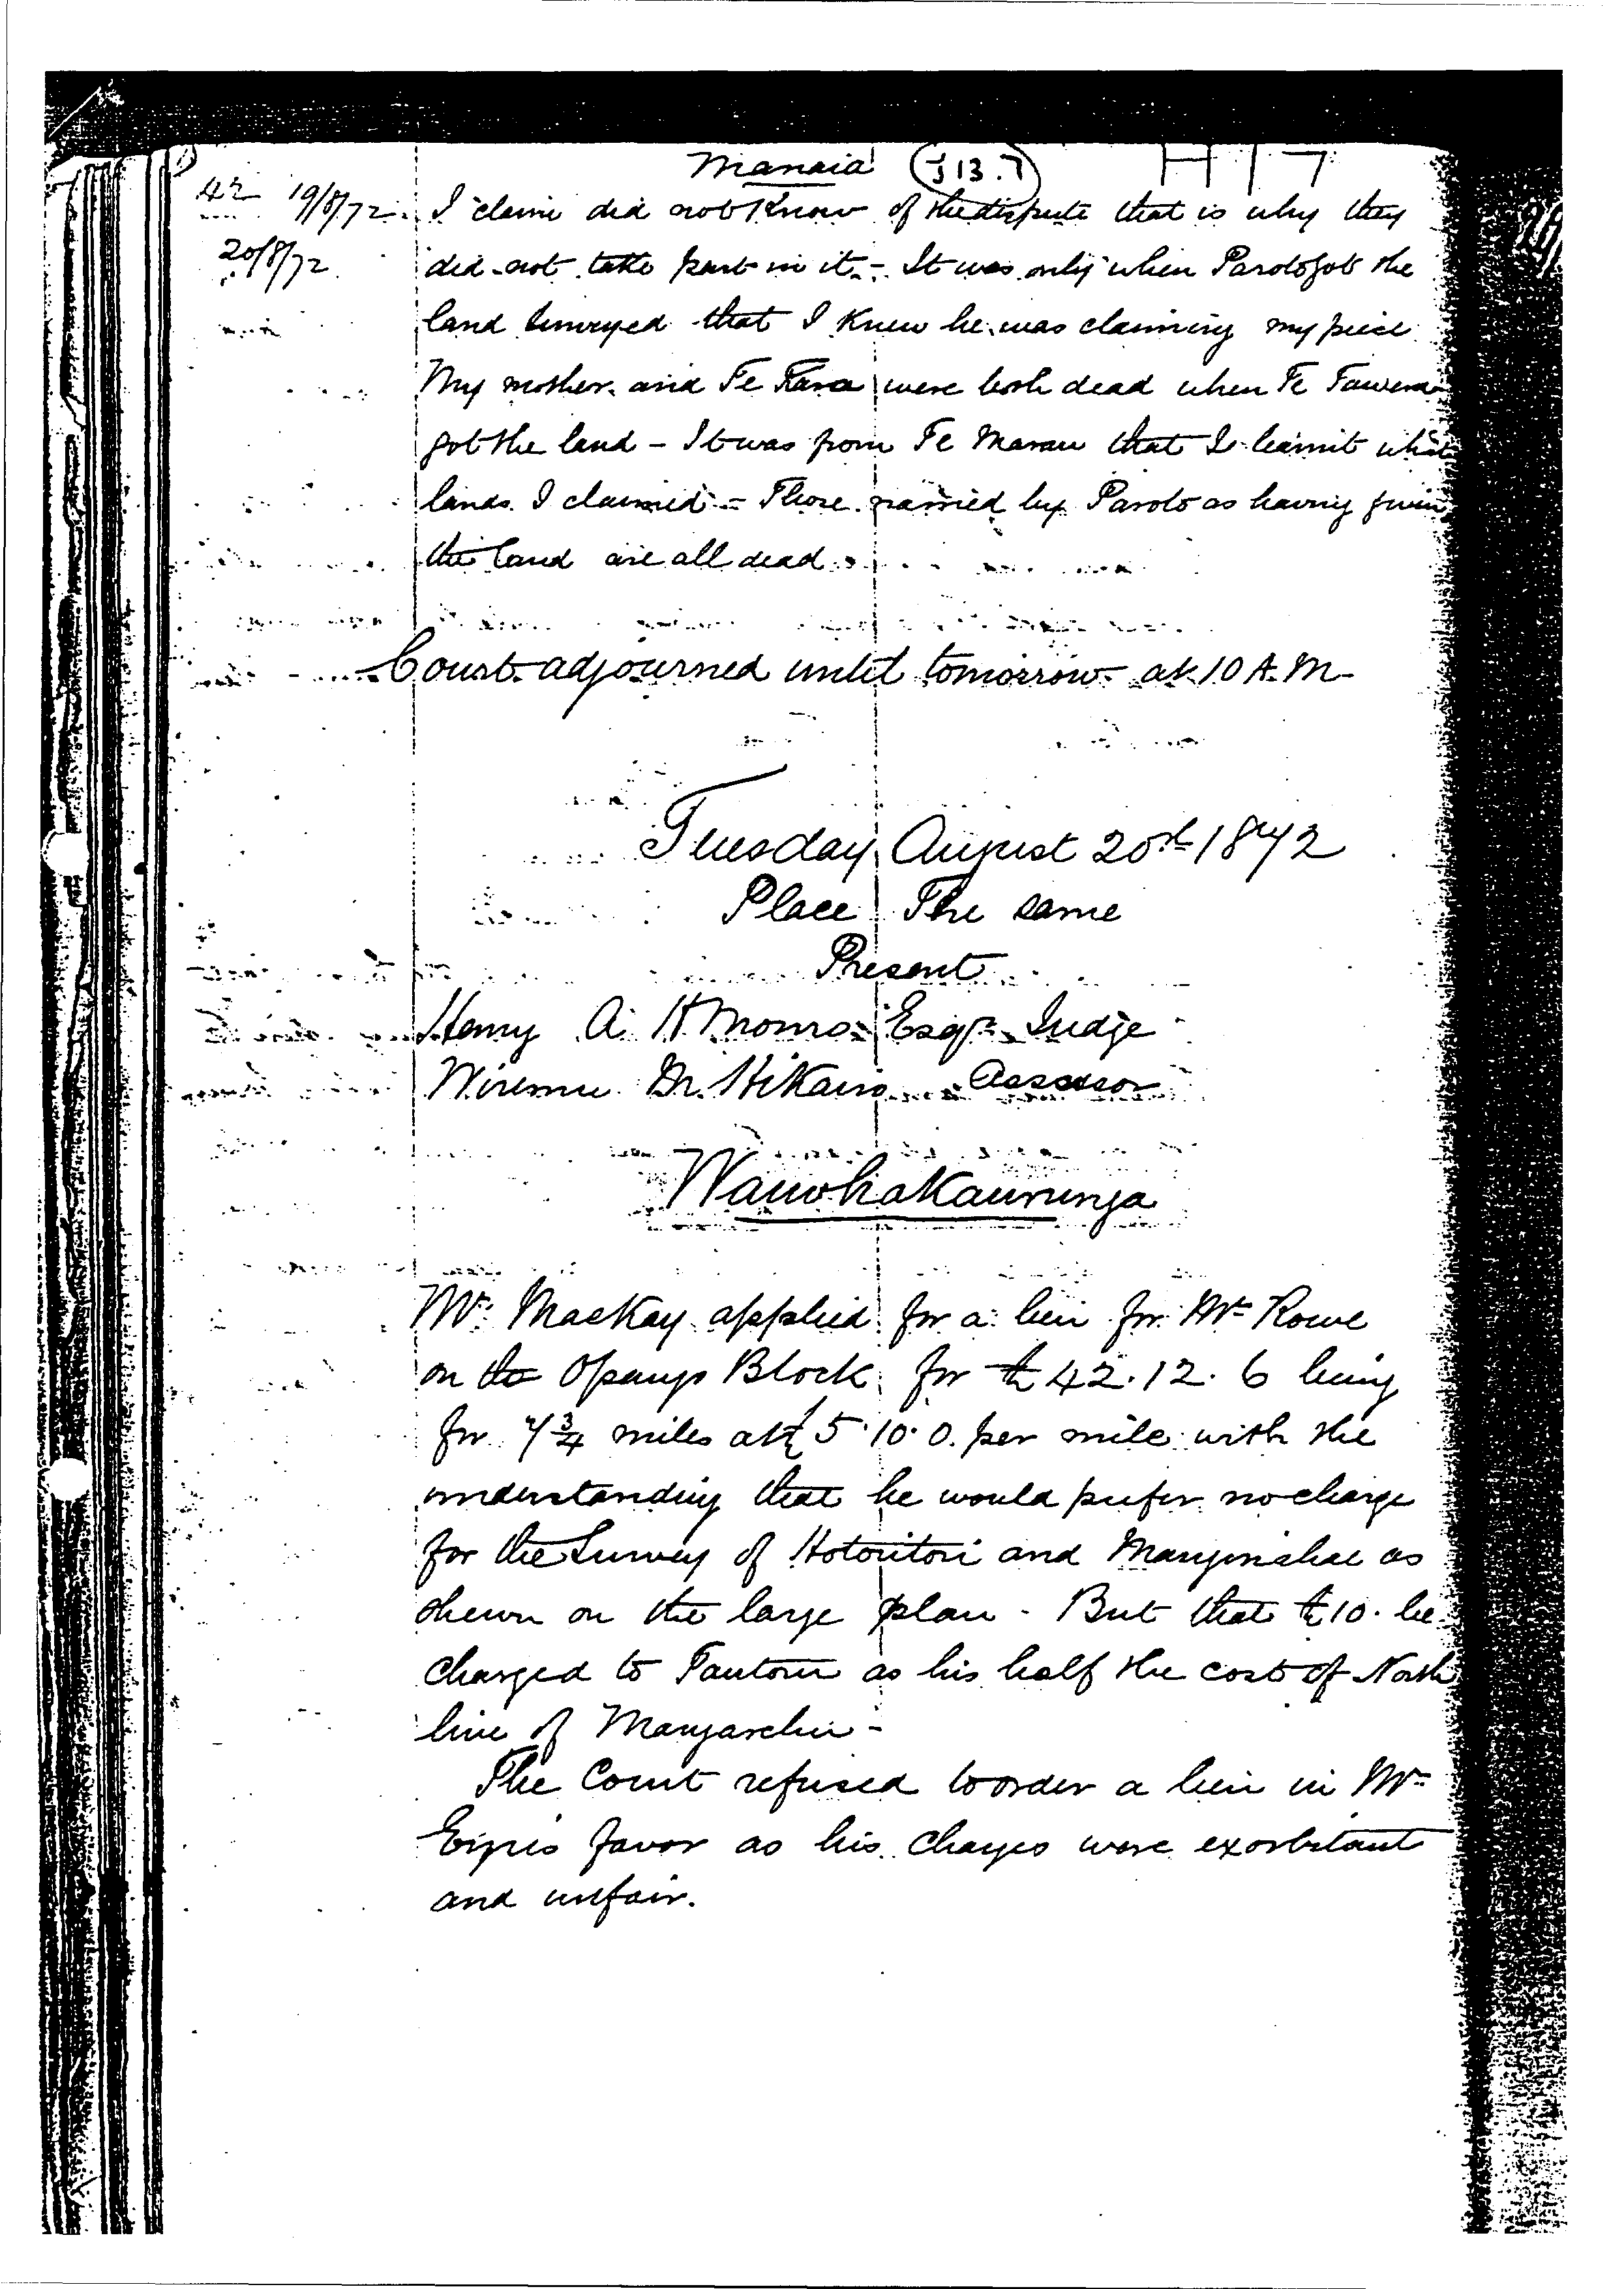 Manaia J 13.7 H 17
42 19/8/72 I claim did not know of the dispute that is why they
20/8/72 did not take part in it. - It was only when Paroto got the
land surveyed that I knew he was claiming my piece
My mother and Te Kara were both dead when Te Tawera
got the land - It was from Te Marau that I learnt what
lands I claimed - Those named by Paroto as having given
the land are all dead.
Court adjourned until tomorrow at 10 A.M.
Tuesday August 20th 1872
Place The same
Present
Henry A. H Monro Esqr. Judge
Wiremu Hikairo Assessor
Waiwhakaurunga
Mr. MacKay applied for a lien for Mr Rowe
on the Block for £42.12.6 being
for 7 3/4 miles at £5.10.0. per mile with the
understanding that he would prefer no charge
for the Survey of Hotoritori and as
shewn on the large plan - But that £10. be
charged to as his half the cost of North
line of -
The Court refused to order a lien in Mr
favor as his charges were exorbitant
and unfair.